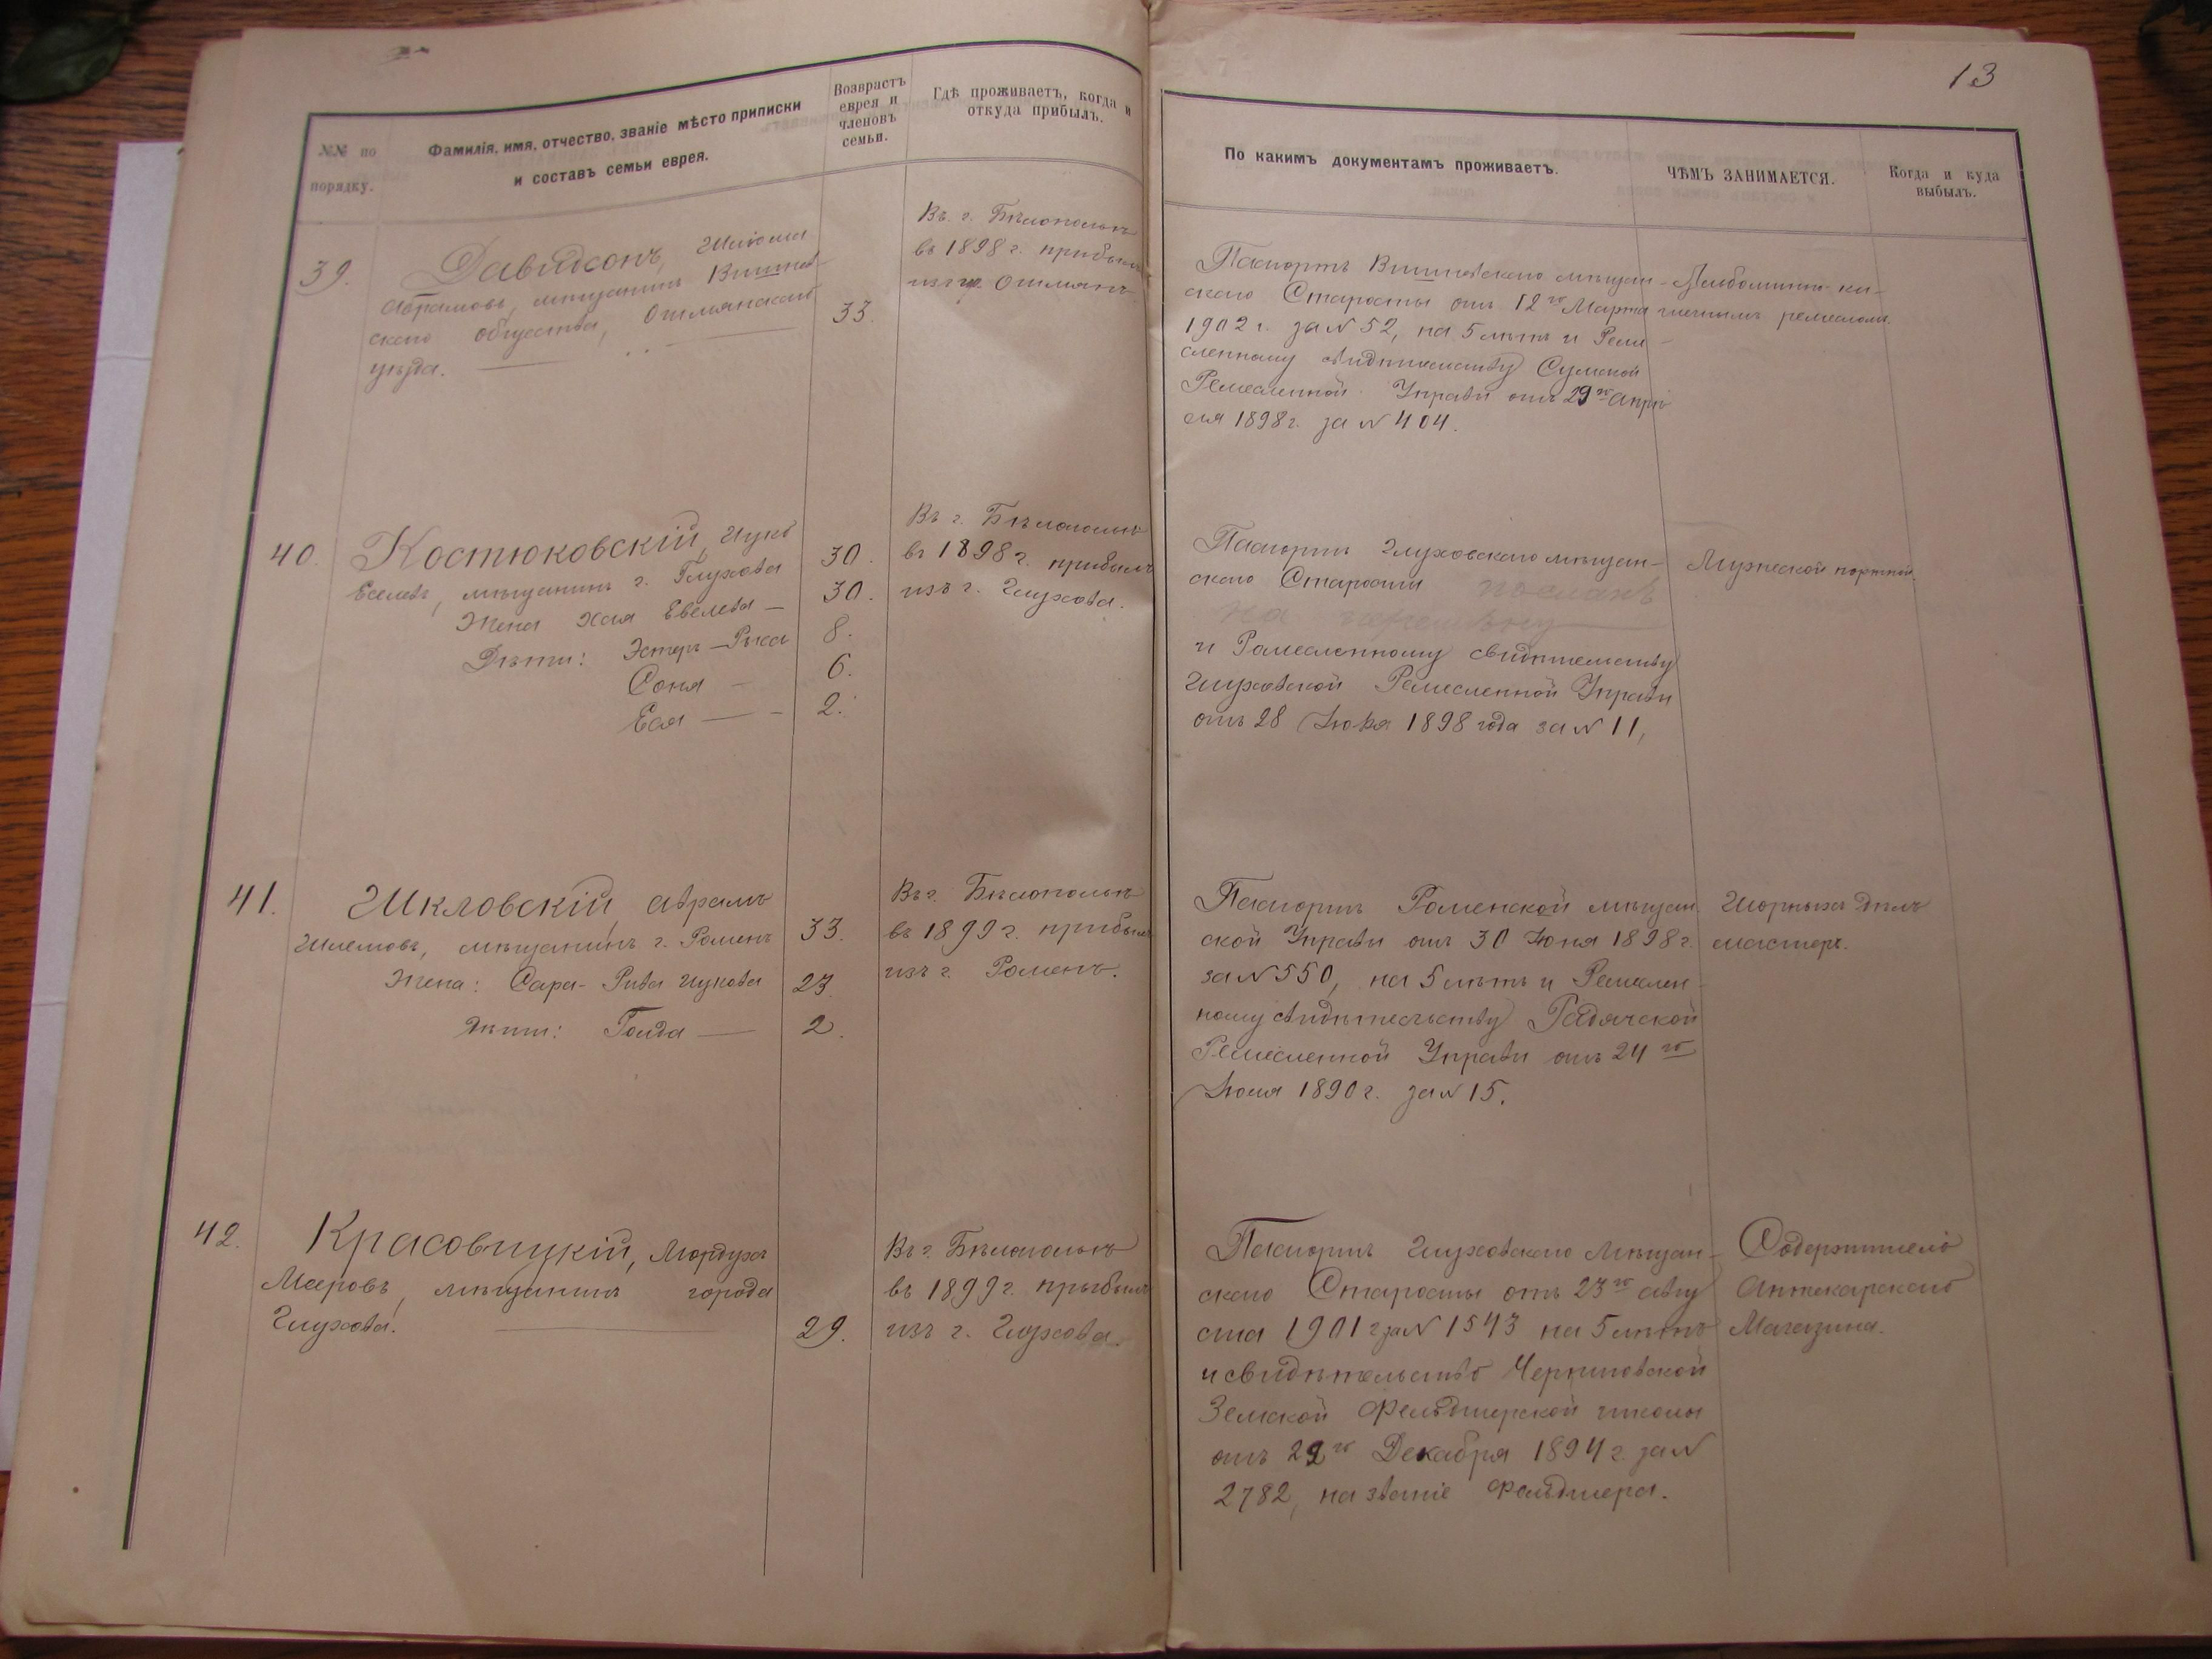 13
№№ по
порядку.
Фамилія, имя, отчество, званіе мѣсто приписки
и составъ семьи еврея.
Возврастъ
еврея и
членовъ
семьи.
Гдѣ проживаетъ, когда и
откуда прибылъ.
По какимъ документамъ проживаетъ.
ЧѢМЪ ЗАНИМАЕТСЯ.
Когда и куда
выбылъ.
39.
Давидсонъ, Шлома
Абрамовъ, мѣщанинъ Вишнев-
скаго общества, Ошмянскаго
уѣзда.
33.
Въ г. Бѣлопольѣ
въ 1898 г. прибылъ
изъ г. Ошмянъ
Паспортъ Вишневскаго мѣщан-
скаго Старосты отъ 12го Марта
1902 г. за № 52, на 5 лѣтъ и Реме-
сленному свидѣтельству Сумской
Ремесленной Управы отъ 29го Апрѣ
ля 1898 г. за № 404.
ремесломъ.
40.
Костюковскій, Ицко
Еселевъ, мѣщанинъ г. Глухова
Жена Хая Евелева —
Дѣти: Эстеръ-Рыся
Соня —
Еся —
30.
30.
8.
6.
2.
Въ г. Бѣлопольѣ
въ 1898 г. прибылъ
изъ г. Глухова.
Паспортъ Глуховскаго мѣщан-
скаго Старосты посланъ
на
и Ремесленному свидѣтельству
Глуховской Ремесленной Управы
отъ 28 1898 года за № 11,
Мужеской портной.
41.
Шкловскій Абрамъ
Шлемовъ, мѣщанинъ г. Роменъ
Жена: Сара-Рива Ицкова
Дѣти: Голда —
33.
23.
2.
Въ г. Бѣлопольѣ
въ 1899 г. прибылъ
изъ г. Роменъ.
Паспортъ Роменской мѣщан
ской Управы отъ 30 Іюня 1898 г.
за № 550, на 5 лѣтъ и Ремеслен-
ному свидѣтельству Гадячской
Ремесленной Управы отъ 24го
Іюля 1890 г. за № 15.
Шорныхъ дѣлъ
мастеръ.
42.
Красовицкій, Мордухъ
Мееровъ, мѣщанинъ города
Глухова.
29.
Въ г. Бѣлопольѣ
въ 1899 г. прибылъ
изъ г. Глухова.
Паспортъ Глуховскаго мѣщан-
скаго Старосты отъ 23го авгу
ста 1901 г за № 1543 на 5 лѣтъ
и свидѣтельство Черниговской
Земской Фельдшерской школы
отъ 22го Декабря 1894 г. за №
2782, на званіе Фельдшера.
Содержитель
Аптекарскаго
Магазина.